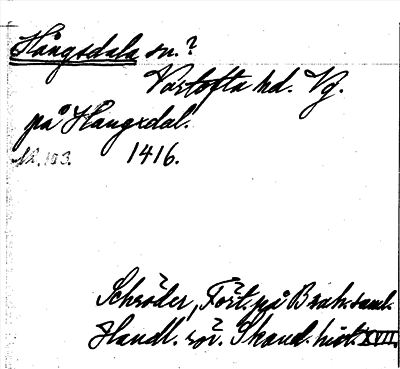 Hångsdala sn.?
Vartofta hd. Vg.
på Hangxdal.
1416.
Schröder, Fört. på Brah. saml.
Handl. rör. Skand. hist. XVII.